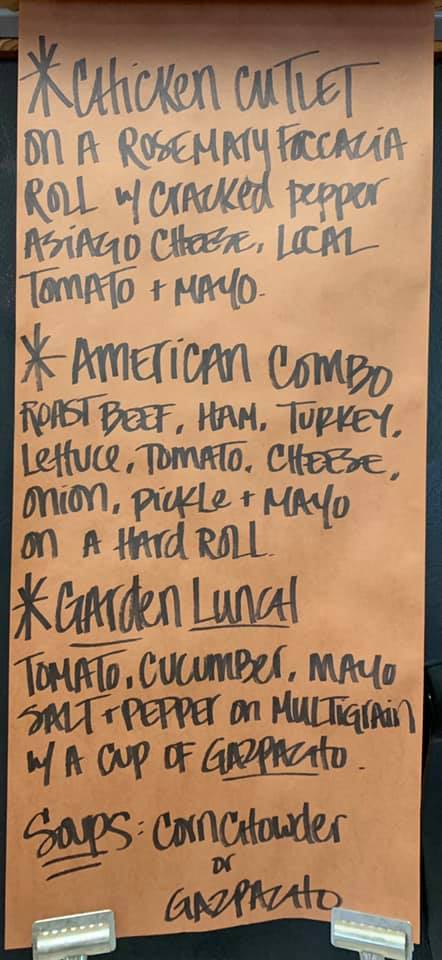 * CHICKEN CUTLET
ON A ROSEMARY FOCCACIA
ROLL w/ CRACKED PEPPER
ASIAGO CHEESE, LOCAL
TOMATO + MAYO.
* AMERICAN COMBO
ROAST BEEF, HAM, TURKEY,
Lettuce, TOMATO, CHEESE,
ONION, PICKLE + MAYO
ON A HARD ROLL.
* GARDEN LUNCH
TOMATO, CUCUMBER, MAYO
SALT + PEPPER ON MULTIGRAIN
w/ A CUP OF GAZPACHO.
SOUPS: CORN CHOWDER
or
GAZPACHO